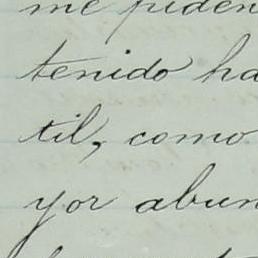 me piden
tenido ha
til, como
yor abun